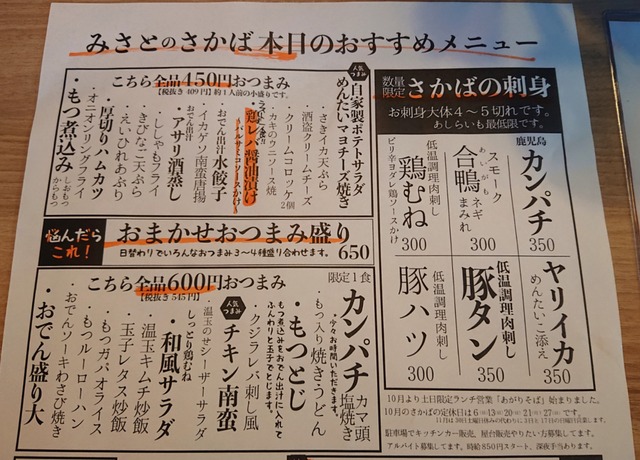 みさとのさかば本日のおすすめメニュー
こちら全品450円おつまみ
【税抜き 409円】約1人前の小盛りです。
人気つまみ
自家製ポテトサラダ
めんたいマヨチーズ焼き
さきイカ天ぷら
酒盗クリームチーズ
クリームコロッケ2個
カキのウニソース焼
鶏レバ醤油漬け
おでん出汁水餃子
イカゲソ南蛮唐揚
おでん出汁
アサリ酒蒸し
ししゃもフライ
きびなご天ぷら
えいひれあぶり
厚切りハムカツ
オニオンリングフライ
もつ煮込み
数量限定
さかばの刺身
お刺身大体4~5切れです。
あしらいも最低限です。
鹿児島
カンパチ
350
スモーク
合鴨
あいがも
ネギまみれ
300
低温調理肉刺し
鶏むね
ピリ辛ヨダレ鶏ソースかけ
300
ヤリイカ
めんたいこ添え
350
低温調理肉刺し
豚タン
350
低温調理肉刺し
豚ハツ
300
悩んだらこれ!
おまかせおつまみ盛り
日替わりでいろんなおつまみ3~4種盛り合わせます。
650
こちら全品600円おつまみ
【税抜き 545円】
限定1食
カンパチカマ頭塩焼き
少々お時間いただきます。
もつ入り焼きうどん
もつとじ
もつ煮込みをおでん出汁に入れて
ふんわりと玉子でとじます。
クジラレバ刺し風
人気つまみ
チキン南蛮
温玉のせシーザーサラダ
しっとり鶏むね
和風サラダ
温玉キムチ炒飯
玉子レタス炒飯
もつガパオライス
もつルーローハン
おでんソーキわさび焼き
おでん盛り大
10月より土日限定ランチ営業「あがりそば」始まりました。
10月のさかばの定休日は6㈰13㈰20㈰21㈪27㈰です。
駐車場でキッチンカー販売、屋台販売やりたい方募集してます。
アルバイト募集してます。時給850円スタート、深夜手当あります。